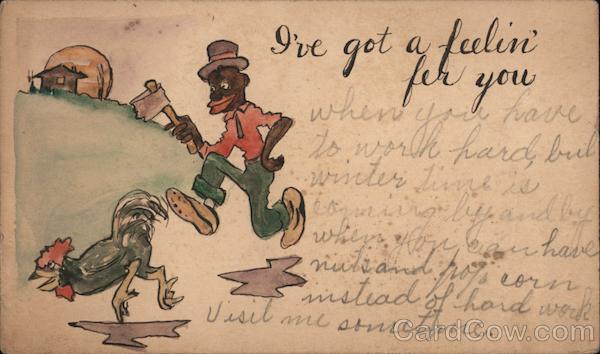 I've got a feelin'
fer you
when you have
to work hard, but
winter time is
coming by and by
when you can have
nuts and pop corn
instead of hard work
Visit me
CardCow.com